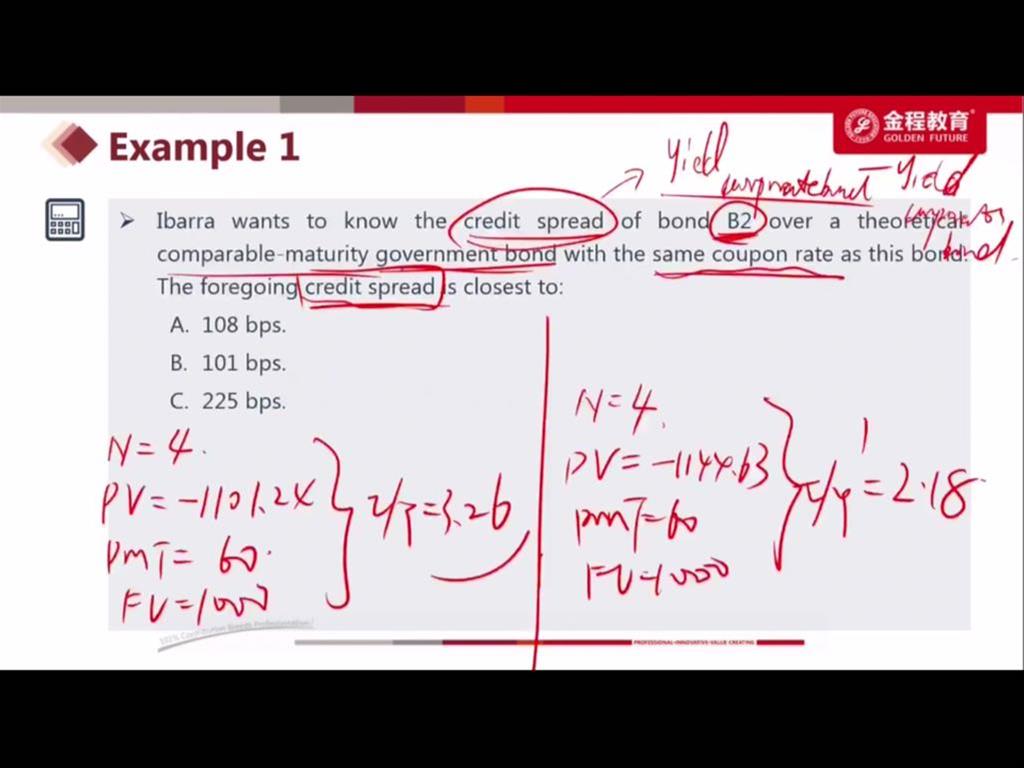 Example 1
金程教育
GOLDEN FUTURE
Yield
corporate bond - Yield
bond.
Ibarra wants to know the credit spread of bond B2 over a theoretical
comparable-maturity government bond with the same coupon rate as this bond.
The foregoing credit spread is closest to:
A. 108 bps.
B. 101 bps.
C. 225 bps.
N = 4.
PV = -1101.24
PMT = 60.
FV = 1000
I/Y = 3.26
N = 4.
PV = -1144.63
PMT = 60
FV = 1000
I/Y = 2.18
100% Contribution Breeds Professionalism
PROFESSIONAL·INNOVATIVE·VALUE CREATING